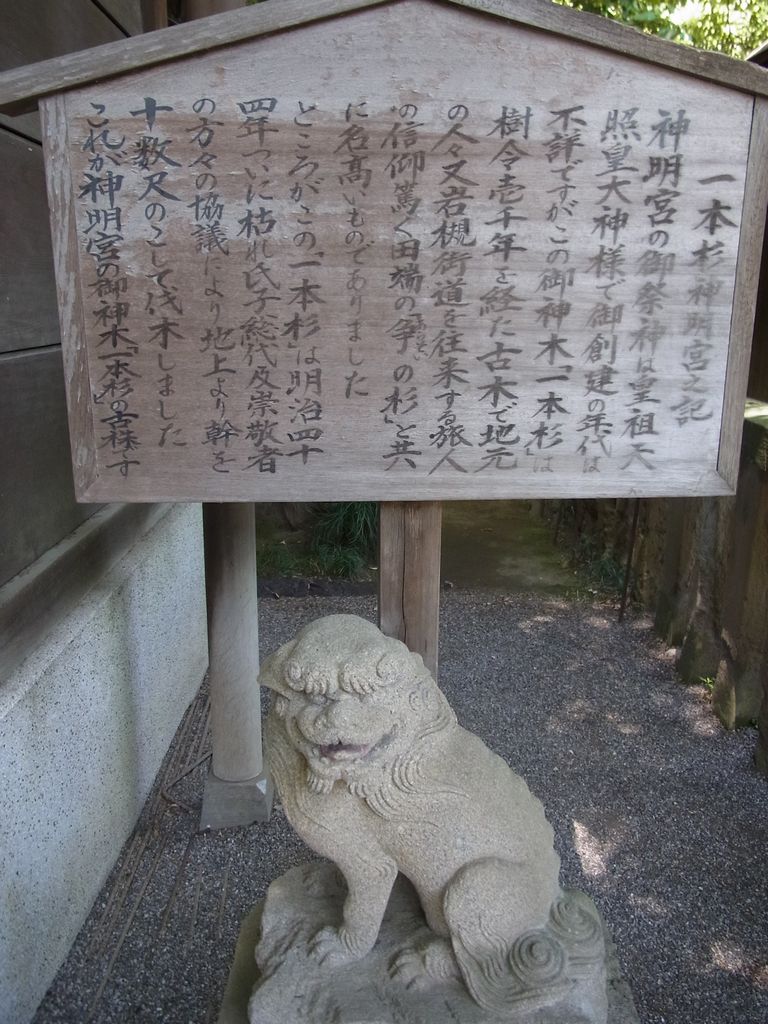 一本杉神明宮之記
神明宮の御祭神は皇祖天
照皇大神様で御創建の年代は
不詳ですがこの御神木「一本杉」は
樹令壱千年を経た古木で地元
の人々又岩槻街道を往来する旅人
の信仰篤く田端の「争の杉」と共
に名高いものでありました
ところがこの「一本杉」は明治四十
四年ついに枯れ氏子総代及崇敬者
の方々の協議により地上より幹を
十数尺のこして伐木しました
これが神明宮の御神木「一本杉」の古株です